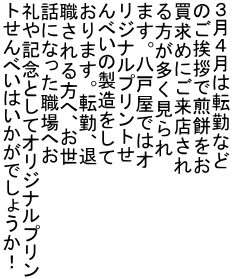 ３月４月は転勤など
のご挨拶で煎餅をお
買求めにご来店され
る方が多く見られ
ます。八戸屋ではオ
リジナルプリントせ
んべいの製造をして
おります。転勤、退
職される方へ、お世
話になった職場へお
礼や記念としてオリジナルプリン
トせんべいはいかがでしょうか！